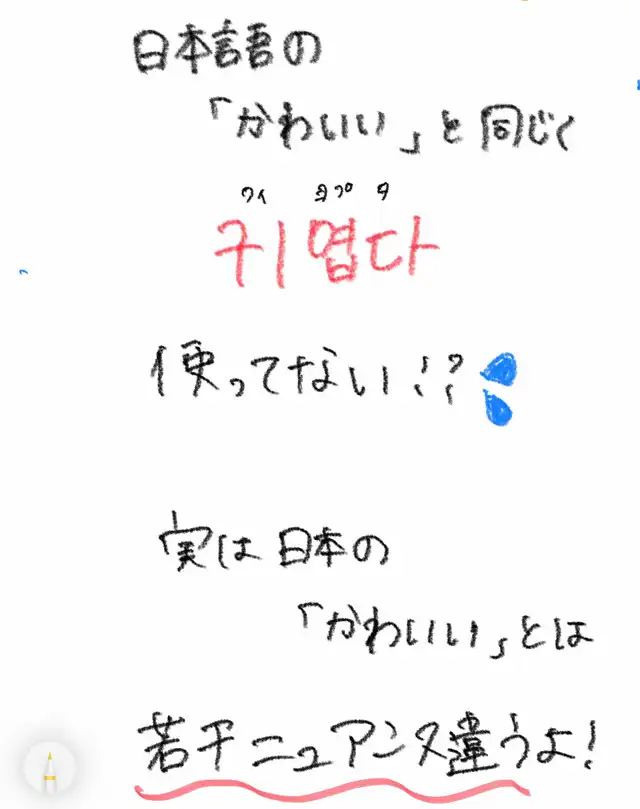 日本語の
「かわいい」と同じく
クィ ヨプ タ
귀엽다
使ってない!?
実は日本の
「かわいい」とは
若干ニュアンス違うよ!